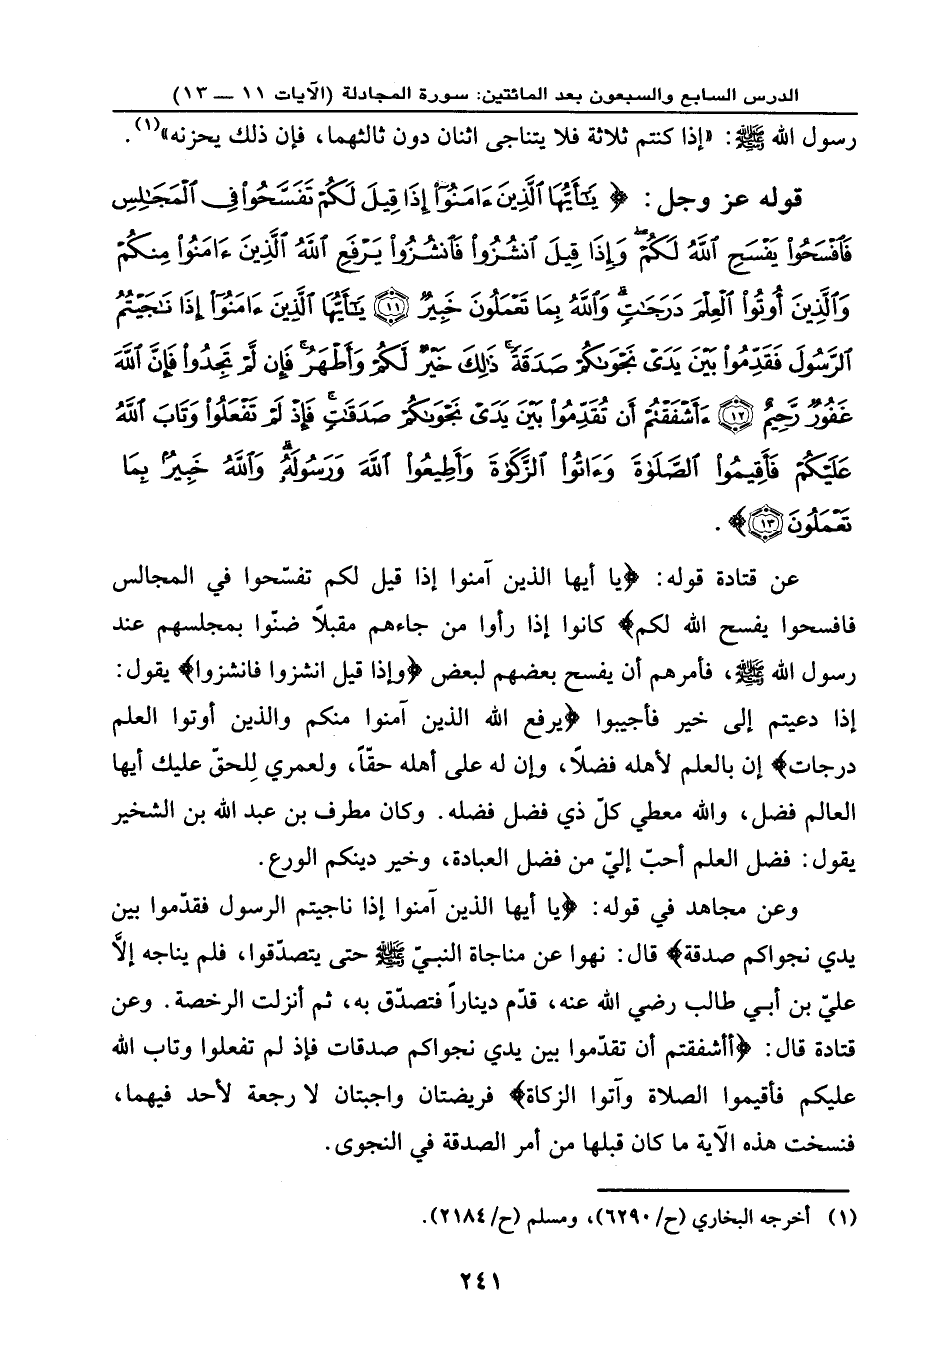 الدرس السابع والسبعون بعد المائتين: سورة المجادلة (الآيات ١١ — ١٣)
رسول الله ﷺ: «إذا كنتم ثلاثة فلا يتناجى اثنان دون ثالثهما، فإن ذلك يحزنه»(١).
قوله عز وجل: ﴿ يَـٰٓأَيُّهَا ٱلَّذِينَ ءَامَنُوٓا۟ إِذَا قِيلَ لَكُمْ تَفَسَّحُوا۟ فِى ٱلْمَجَـٰلِسِ
فَٱفْسَحُوا۟ يَفْسَحِ ٱللَّهُ لَكُمْ ۖ وَإِذَا قِيلَ ٱنشُزُوا۟ فَٱنشُزُوا۟ يَرْفَعِ ٱللَّهُ ٱلَّذِينَ ءَامَنُوا۟ مِنكُمْ
وَٱلَّذِينَ أُوتُوا۟ ٱلْعِلْمَ دَرَجَـٰتٍ ۚ وَٱللَّهُ بِمَا تَعْمَلُونَ خَبِيرٌ ﴿١١﴾ يَـٰٓأَيُّهَا ٱلَّذِينَ ءَامَنُوٓا۟ إِذَا نَـٰجَيْتُمُ
ٱلرَّسُولَ فَقَدِّمُوا۟ بَيْنَ يَدَىْ نَجْوَىٰكُمْ صَدَقَةً ۚ ذَٰلِكَ خَيْرٌ لَّكُمْ وَأَطْهَرُ ۚ فَإِن لَّمْ تَجِدُوا۟ فَإِنَّ ٱللَّهَ
غَفُورٌ رَّحِيمٌ ﴿١٢﴾ ءَأَشْفَقْتُمْ أَن تُقَدِّمُوا۟ بَيْنَ يَدَىْ نَجْوَىٰكُمْ صَدَقَـٰتٍ ۚ فَإِذْ لَمْ تَفْعَلُوا۟ وَتَابَ ٱللَّهُ
عَلَيْكُمْ فَأَقِيمُوا۟ ٱلصَّلَوٰةَ وَءَاتُوا۟ ٱلزَّكَوٰةَ وَأَطِيعُوا۟ ٱللَّهَ وَرَسُولَهُۥ ۚ وَٱللَّهُ خَبِيرٌۢ بِمَا
تَعْمَلُونَ ﴿١٣﴾ ﴾.
عن قتادة قوله: ﴿يا أيها الذين آمنوا إذا قيل لكم تفسّحوا في المجالس
فافسحوا يفسح الله لكم﴾ كانوا إذا رأوا من جاءهم مقبلاً ضنّوا بمجلسهم عند
رسول الله ﷺ، فأمرهم أن يفسح بعضهم لبعض ﴿وإذا قيل انشزوا فانشزوا﴾ يقول:
إذا دعيتم إلى خير فأجيبوا ﴿يرفع الله الذين آمنوا منكم والذين أوتوا العلم
درجات﴾ إن بالعلم لأهله فضلاً، وإن له على أهله حقّاً، ولعمري لِلحقّ عليك أيها
العالم فضل، والله معطي كلّ ذي فضل فضله. وكان مطرف بن عبد الله بن الشخير
يقول: فضل العلم أحبّ إليّ من فضل العبادة، وخير دينكم الورع.
وعن مجاهد في قوله: ﴿يا أيها الذين آمنوا إذا ناجيتم الرسول فقدّموا بين
يدي نجواكم صدقة﴾ قال: نهوا عن مناجاة النبيّ ﷺ حتى يتصدّقوا، فلم يناجه إلاَّ
عليّ بن أبي طالب رضي الله عنه، قدّم ديناراً فتصدّق به، ثم أنزلت الرخصة. وعن
قتادة قال: ﴿أأشفقتم أن تقدّموا بين يدي نجواكم صدقات فإذ لم تفعلوا وتاب الله
عليكم فأقيموا الصلاة وآتوا الزكاة﴾ فريضتان واجبتان لا رجعة لأحد فيهما،
فنسخت هذه الآية ما كان قبلها من أمر الصدقة في النجوى.
(١) أخرجه البخاري (ح/ ٦٢٩٠)، ومسلم (ح/ ٢١٨٤).
٢٤١